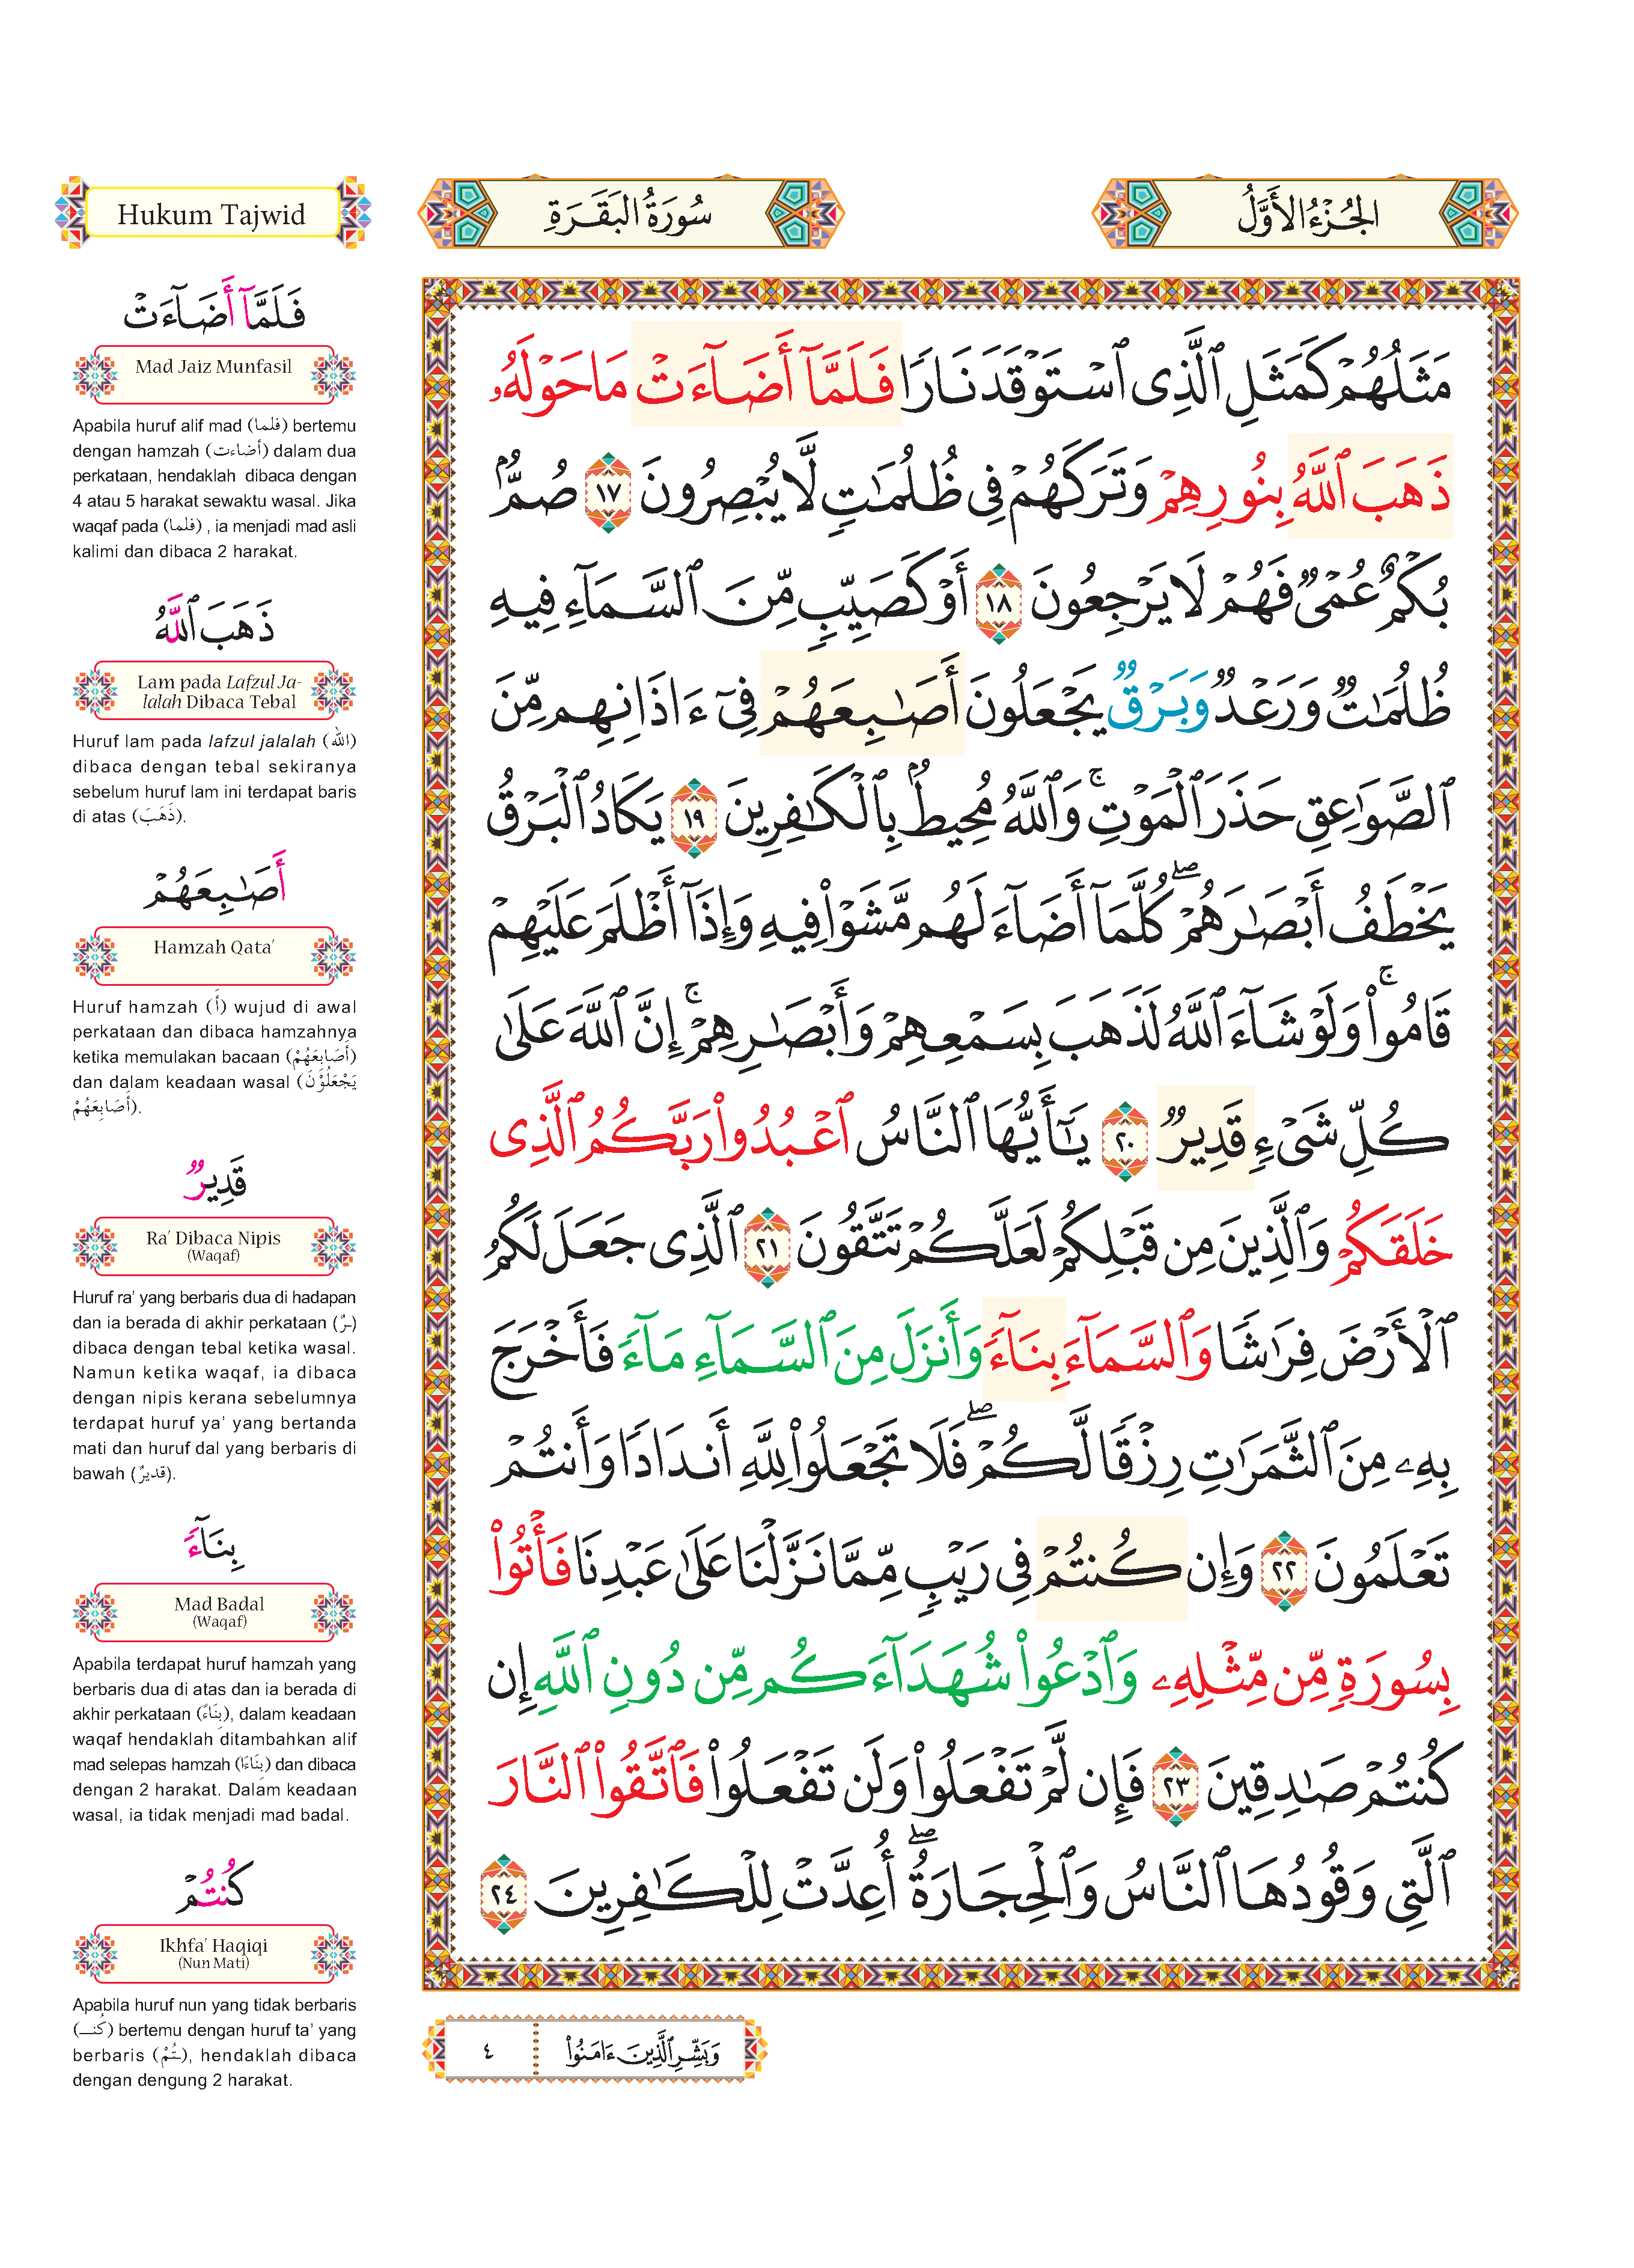 Hukum Tajwid
سُورَةُ الْبَقَرَةِ
الجُزْءُ الأَوَّلُ
فَلَمَّآ أَضَآءَتْ
Mad Jaiz Munfasil
Apabila huruf alif mad (فلما) bertemu
dengan hamzah (أضاءت) dalam dua
perkataan, hendaklah dibaca dengan
4 atau 5 harakat sewaktu wasal. Jika
waqaf pada (فلما) , ia menjadi mad asli
kalimi dan dibaca 2 harakat.
ذَهَبَ ٱللَّهُ
Lam pada Lafzul Ja-
lalah Dibaca Tebal
Huruf lam pada lafzul jalalah (الله)
dibaca dengan tebal sekiranya
sebelum huruf lam ini terdapat baris
di atas (ذَهَبَ).
أَصَـٰبِعَهُمْ
Hamzah Qata’
Huruf hamzah (أَ) wujud di awal
perkataan dan dibaca hamzahnya
ketika memulakan bacaan (أَصَابِعَهُمْ)
dan dalam keadaan wasal (يَجْعَلُوْنَ
أَصَابِعَهُمْ).
قَدِيرٌ
Ra’ Dibaca Nipis
(Waqaf)
Huruf ra’ yang berbaris dua di hadapan
dan ia berada di akhir perkataan (ـرٌ)
dibaca dengan tebal ketika wasal.
Namun ketika waqaf, ia dibaca
dengan nipis kerana sebelumnya
terdapat huruf ya’ yang bertanda
mati dan huruf dal yang berbaris di
bawah (قَدِيرٌ).
بِنَآءً
Mad Badal
(Waqaf)
Apabila terdapat huruf hamzah yang
berbaris dua di atas dan ia berada di
akhir perkataan (بِنَاءً), dalam keadaan
waqaf hendaklah ditambahkan alif
mad selepas hamzah (بِنَاءَا) dan dibaca
dengan 2 harakat. Dalam keadaan
wasal, ia tidak menjadi mad badal.
كُنتُمْ
Ikhfa’ Haqiqi
(Nun Mati)
Apabila huruf nun yang tidak berbaris
(كُنـ) bertemu dengan huruf ta’ yang
berbaris (ـتُمْ), hendaklah dibaca
dengan dengung 2 harakat.
مَثَلُهُمْ كَمَثَلِ ٱلَّذِى ٱسْتَوْقَدَ نَارًا فَلَمَّآ أَضَآءَتْ مَا حَوْلَهُۥ
ذَهَبَ ٱللَّهُ بِنُورِهِمْ وَتَرَكَهُمْ فِى ظُلُمَـٰتٍ لَّا يُبْصِرُونَ ١٧ صُمٌّۢ
بُكْمٌ عُمْىٌ فَهُمْ لَا يَرْجِعُونَ ١٨ أَوْ كَصَيِّبٍ مِّنَ ٱلسَّمَآءِ فِيهِ
ظُلُمَـٰتٌ وَرَعْدٌ وَبَرْقٌ يَجْعَلُونَ أَصَـٰبِعَهُمْ فِىٓ ءَاذَانِهِم مِّنَ
ٱلصَّوَٰعِقِ حَذَرَ ٱلْمَوْتِ ۚ وَٱللَّهُ مُحِيطٌۢ بِٱلْكَـٰفِرِينَ ١٩ يَكَادُ ٱلْبَرْقُ
يَخْطَفُ أَبْصَـٰرَهُمْ ۖ كُلَّمَآ أَضَآءَ لَهُم مَّشَوْا۟ فِيهِ وَإِذَآ أَظْلَمَ عَلَيْهِمْ
قَامُوا۟ ۚ وَلَوْ شَآءَ ٱللَّهُ لَذَهَبَ بِسَمْعِهِمْ وَأَبْصَـٰرِهِمْ ۚ إِنَّ ٱللَّهَ عَلَىٰ
كُلِّ شَىْءٍ قَدِيرٌ ٢٠ يَـٰٓأَيُّهَا ٱلنَّاسُ ٱعْبُدُوا۟ رَبَّكُمُ ٱلَّذِى
خَلَقَكُمْ وَٱلَّذِينَ مِن قَبْلِكُمْ لَعَلَّكُمْ تَتَّقُونَ ٢١ ٱلَّذِى جَعَلَ لَكُمُ
ٱلْأَرْضَ فِرَٰشًا وَٱلسَّمَآءَ بِنَآءً وَأَنزَلَ مِنَ ٱلسَّمَآءِ مَآءً فَأَخْرَجَ
بِهِۦ مِنَ ٱلثَّمَرَٰتِ رِزْقًا لَّكُمْ ۖ فَلَا تَجْعَلُوا۟ لِلَّهِ أَندَادًا وَأَنتُمْ
تَعْلَمُونَ ٢٢ وَإِن كُنتُمْ فِى رَيْبٍ مِّمَّا نَزَّلْنَا عَلَىٰ عَبْدِنَا فَأْتُوا۟
بِسُورَةٍ مِّن مِّثْلِهِۦ وَٱدْعُوا۟ شُهَدَآءَكُم مِّن دُونِ ٱللَّهِ إِن
كُنتُمْ صَـٰدِقِينَ ٢٣ فَإِن لَّمْ تَفْعَلُوا۟ وَلَن تَفْعَلُوا۟ فَٱتَّقُوا۟ ٱلنَّارَ
ٱلَّتِى وَقُودُهَا ٱلنَّاسُ وَٱلْحِجَارَةُ ۖ أُعِدَّتْ لِلْكَـٰفِرِينَ ٢٤
وَبَشِّرِ ٱلَّذِينَ ءَامَنُوا۟
٤